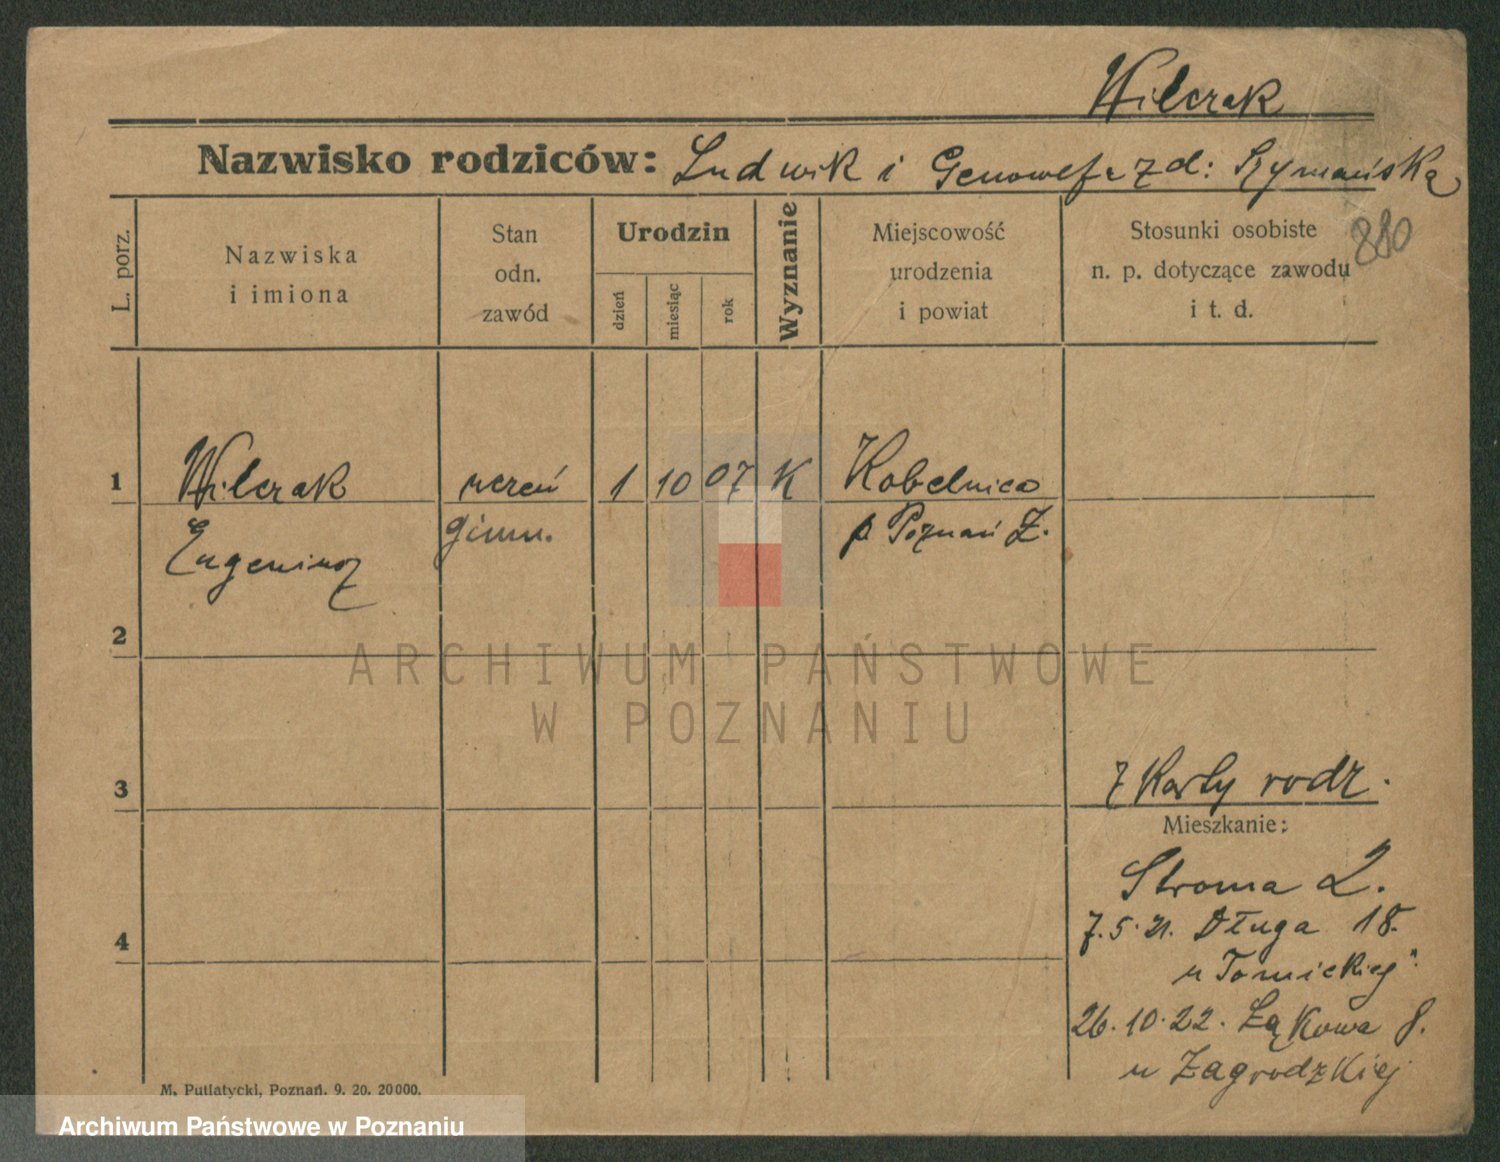 Wilczak
Nazwisko rodziców: Ludwik i Genowefa z d: Rymańska
880
L. porz.
Nazwiska
i imiona
Stan
odn.
zawód
Urodzin
dzień
miesiąc
rok
Wyznanie
Miejscowość
urodzenia
i powiat
Stosunki osobiste
n. p. dotyczące zawodu
i t. d.
1 Wilczak uczeń 1 10 07 K Kobelnica
Eugeniusz gimn. p Poznań Z.
2
3
z Karty rodz.
Mieszkanie:
Stroma 2.
7.5.21. Długa 18.
4
u Tomickiej
26.10.22. Łąkowa 8.
u Zagrodzkiej
M. Putiatycki, Poznań. 9. 20. 20000.
ARCHIWUM PAŃSTWOWE
W POZNANIU
Archiwum Państwowe w Poznaniu